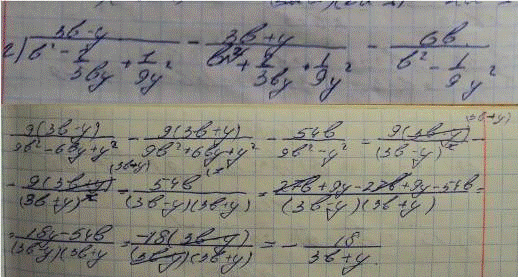 2) (3b-y)/(b²-2/3by+1/9y²) - (3b+y)/(b²+2/3by+1/9y²) - 6b/(b²-1/9y²)
9(3b-y)/(9b²-6by+y²) - 9(3b+y)/(9b²+6by+y²) - 54b/(9b²-y²) = 9(3b-y)/(3b-y)² (3b+y) -
- 9(3b+y)/(3b+y)² (3b-y) - 54b/((3b-y)(3b+y)) = (27b+9y-27b+9y-54b)/((3b-y)(3b+y)) =
= (18y-54b)/((3b-y)(3b+y) = -18(3b-y)/((3b-y)(3b+y)) = - 18/(3b+y)